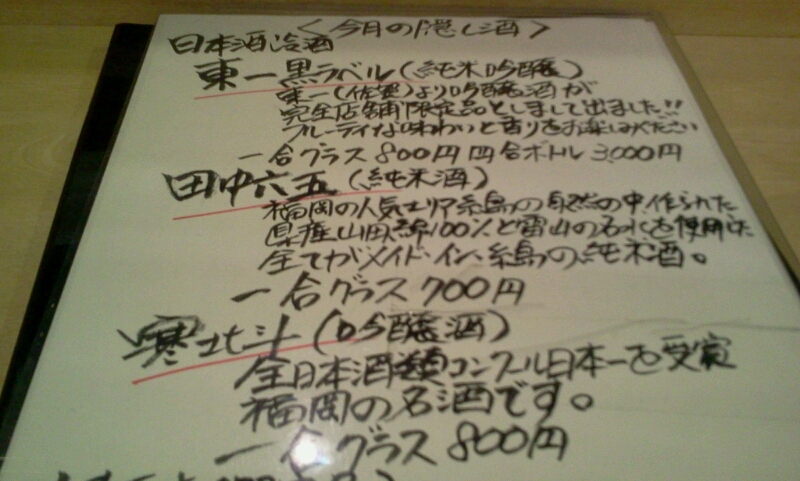 <今月の隠し酒>
日本酒冷酒
東一黒ラベル(純米吟醸)
東一(佐賀)より吟醸酒が
完全店舗限定品としまして出ました!!
フルーティな味わいと香りをお楽しみください
一合グラス 800円 四合ボトル 3,000円
田中六五(純米酒)
福岡の人気エリア糸島の自然の中、作られた
県産山田錦100%と雷山の名水を使用した
全てがメイド・イン・糸島の純米酒。
一合グラス 700円
寒北斗(吟醸酒)
全日本酒類コンクール日本一を受賞
福岡の名酒です。
一合グラス 800円